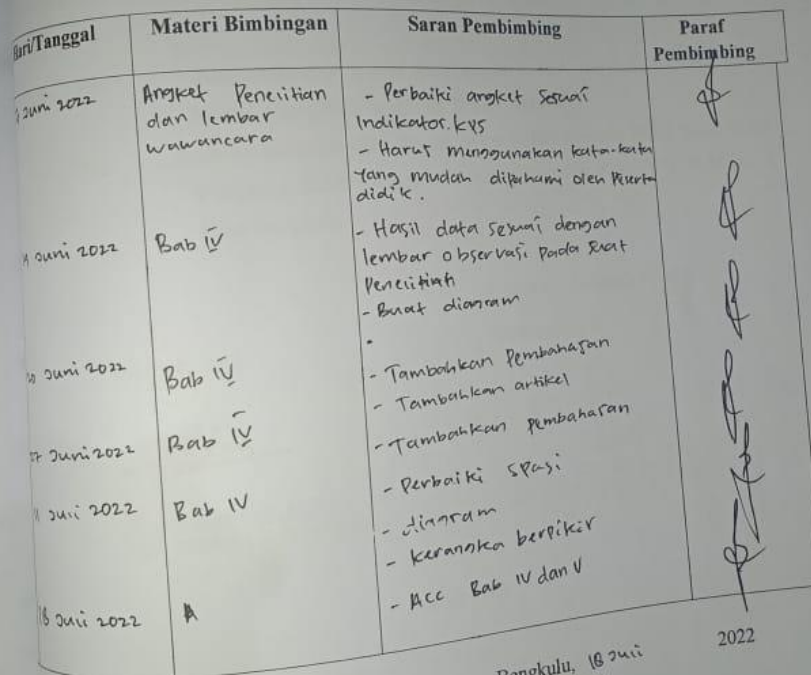 Hari/Tanggal Materi Bimbingan Saran Pembimbing Paraf Pembimbing
Juni 2022 Angket Penelitian - Perbaiki angket sesuai
dan lembar Indikator. KPS
wawancara - Harus menggunakan kata-kata
yang mudah dipahami oleh Peserta
didik.
Juni 2022 Bab IV - Hasil data sesuai dengan
lembar observasi pada saat
Penelitian
- Buat diagram
Juni 2022 Bab IV - Tambahkan Pembahasan
- Tambahkan artikel
27 Juni 2022 Bab IV - Tambahkan pembahasan
- Perbaiki spasi
Juli 2022 Bab IV - diagram
- kerangka berpikir
18 Juli 2022 - Acc Bab IV dan V
Bengkulu, 18 Juli 2022